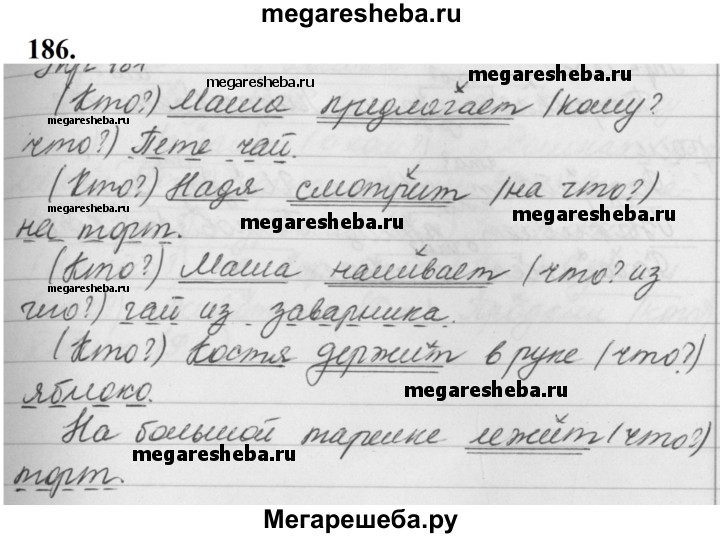 megaresheba.ru
186.
megaresheba.ru
megaresheba.ru
(Кто?) Маша предлагает (кому?
megaresheba.ru
что?) Пете чай.
(Кто?) Надя смотрит (на что?)
megaresheba.ru
megaresheba.ru
на торт.
(Кто?) Маша наливает (что? из
megaresheba.ru
чего?) чай из заварника.
(Кто?) Костя держит в руке (что?)
megaresheba.ru
яблоко.
На большой тарелке лежит (что?)
megaresheba.ru
торт.
Мегарешеба.ру